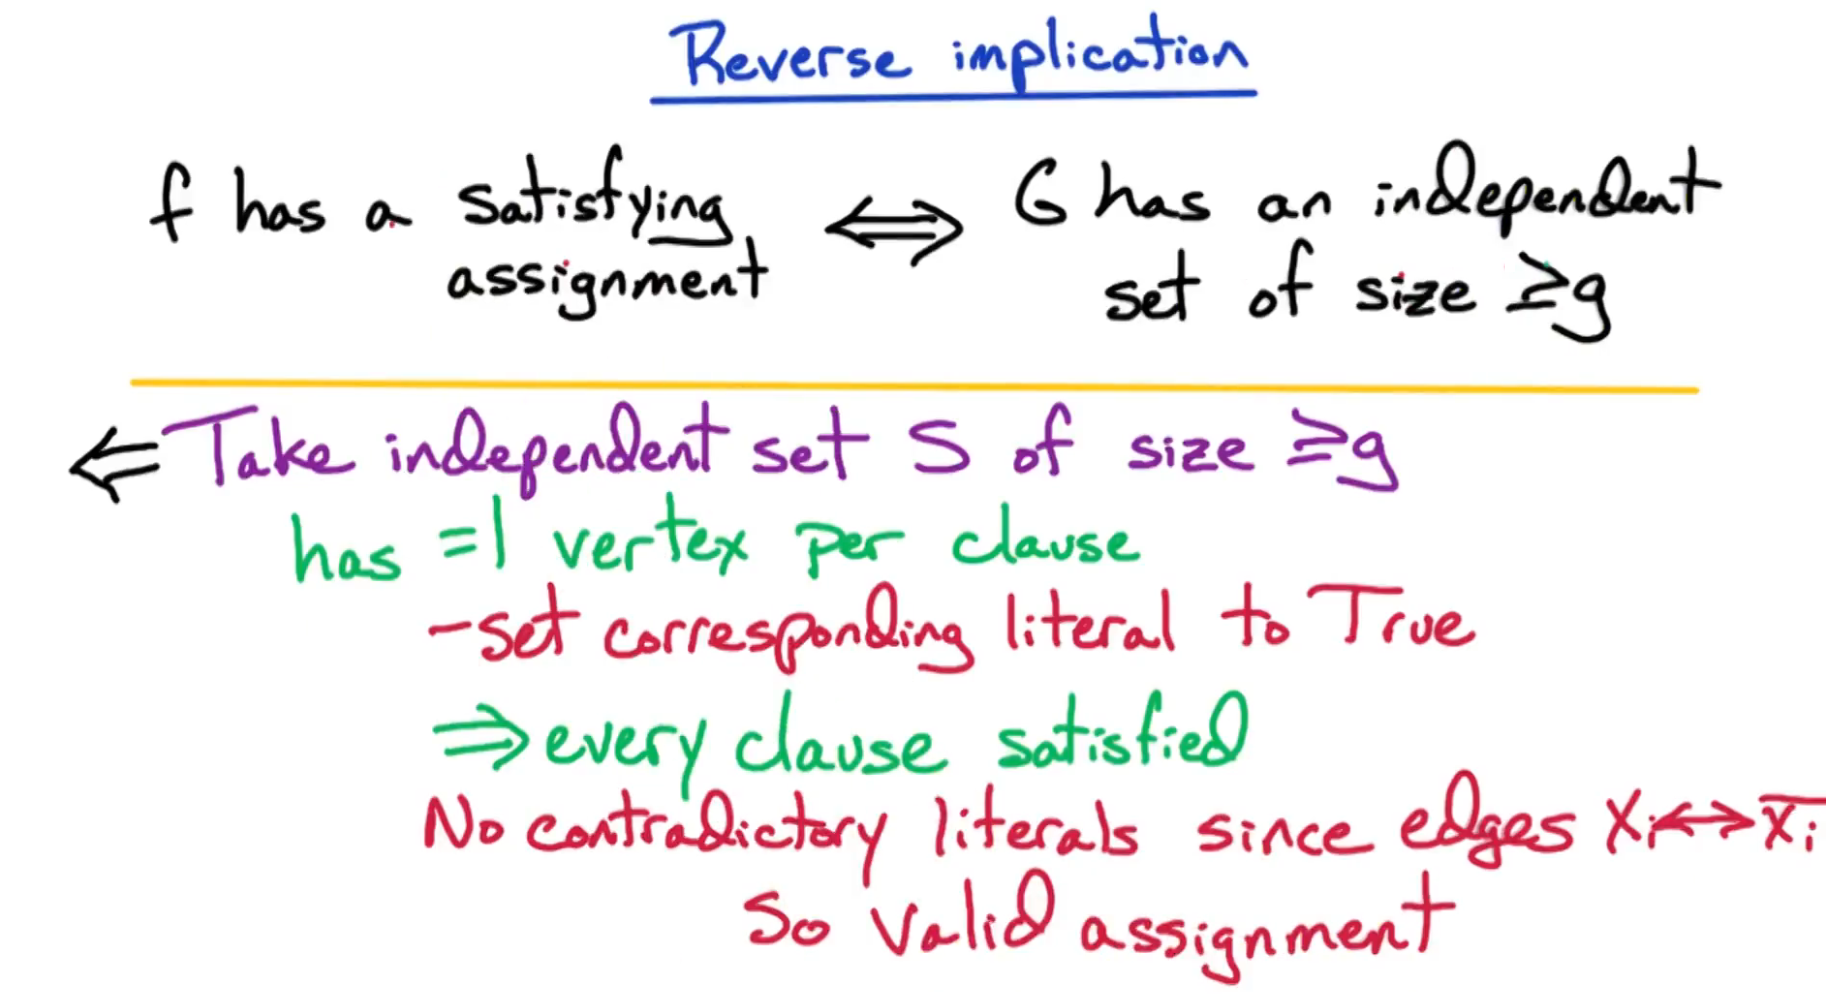 Reverse implication
f has a satisfying ⟺ G has an independent
assignment set of size ≥g
⇐ Take independent set S of size ≥g
has =1 vertex per clause
-set corresponding literal to True
⇒ every clause satisfied
No contradictory literals since edges Xᵢ↔X̅ᵢ
So valid assignment